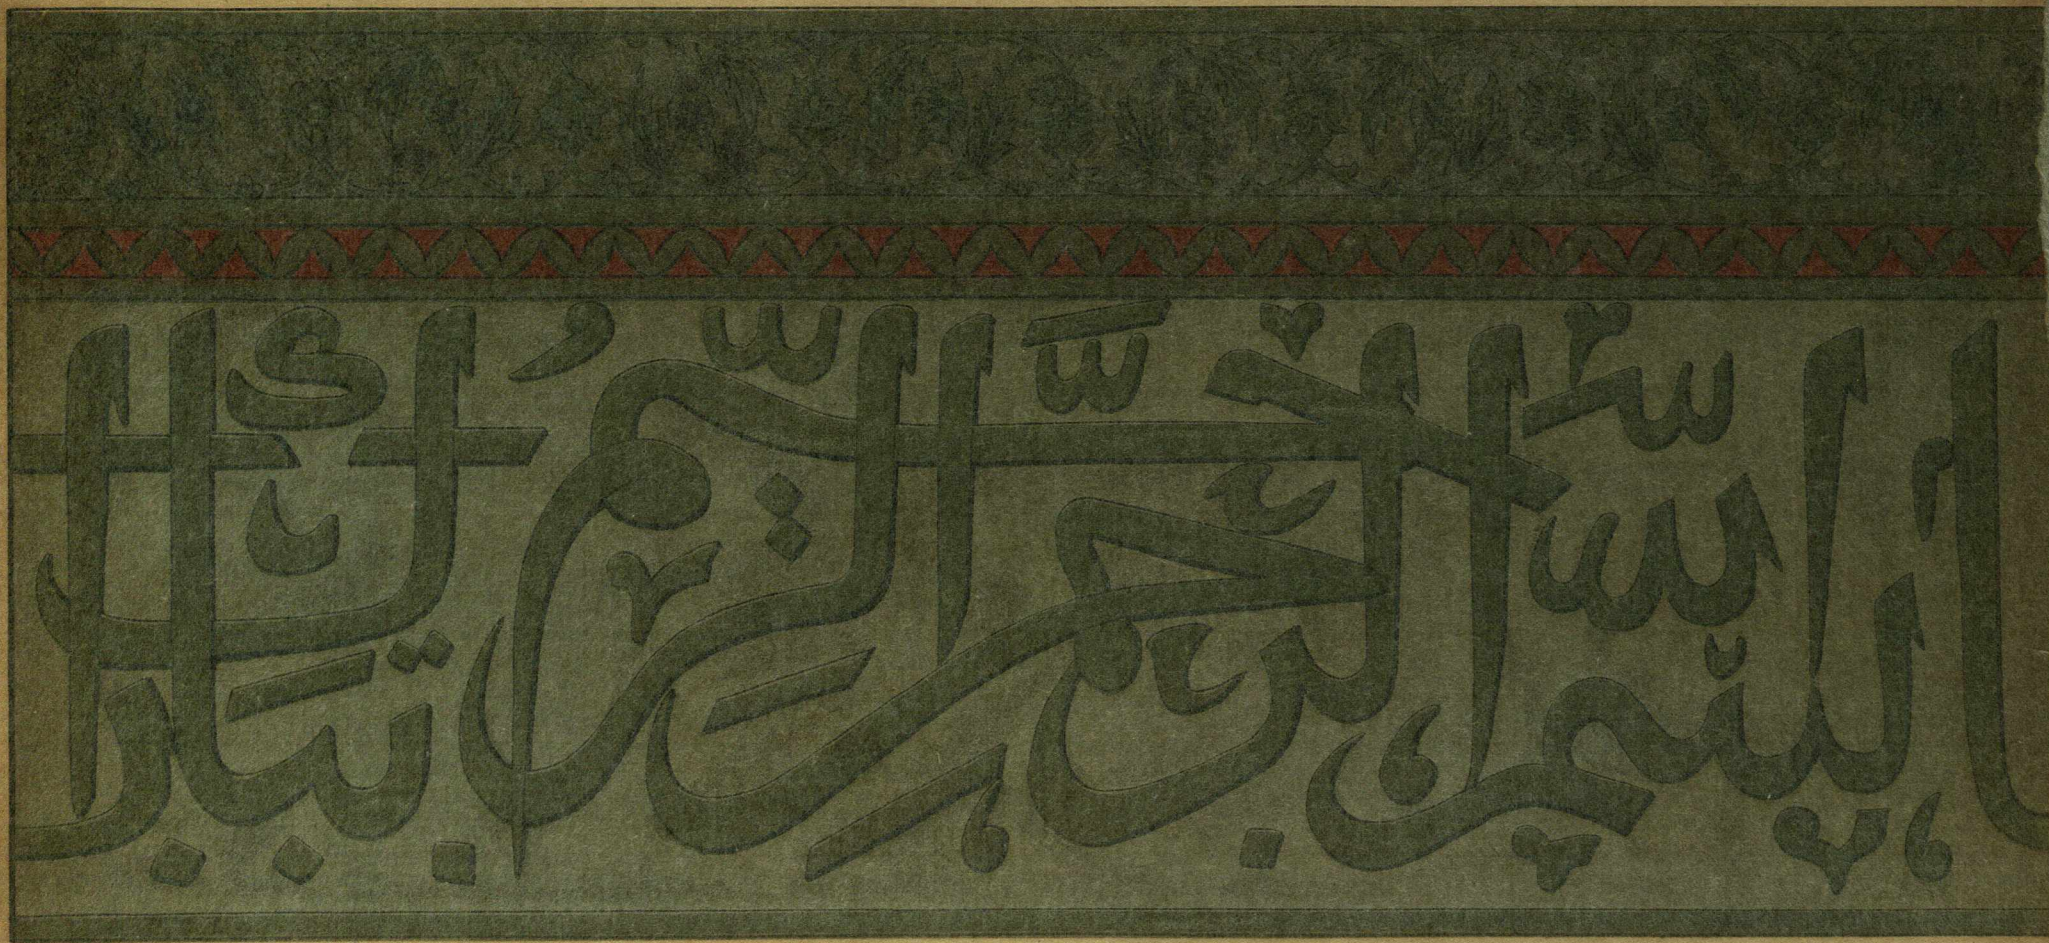 بسم الله الرحمن الرحيم تبارك الذي